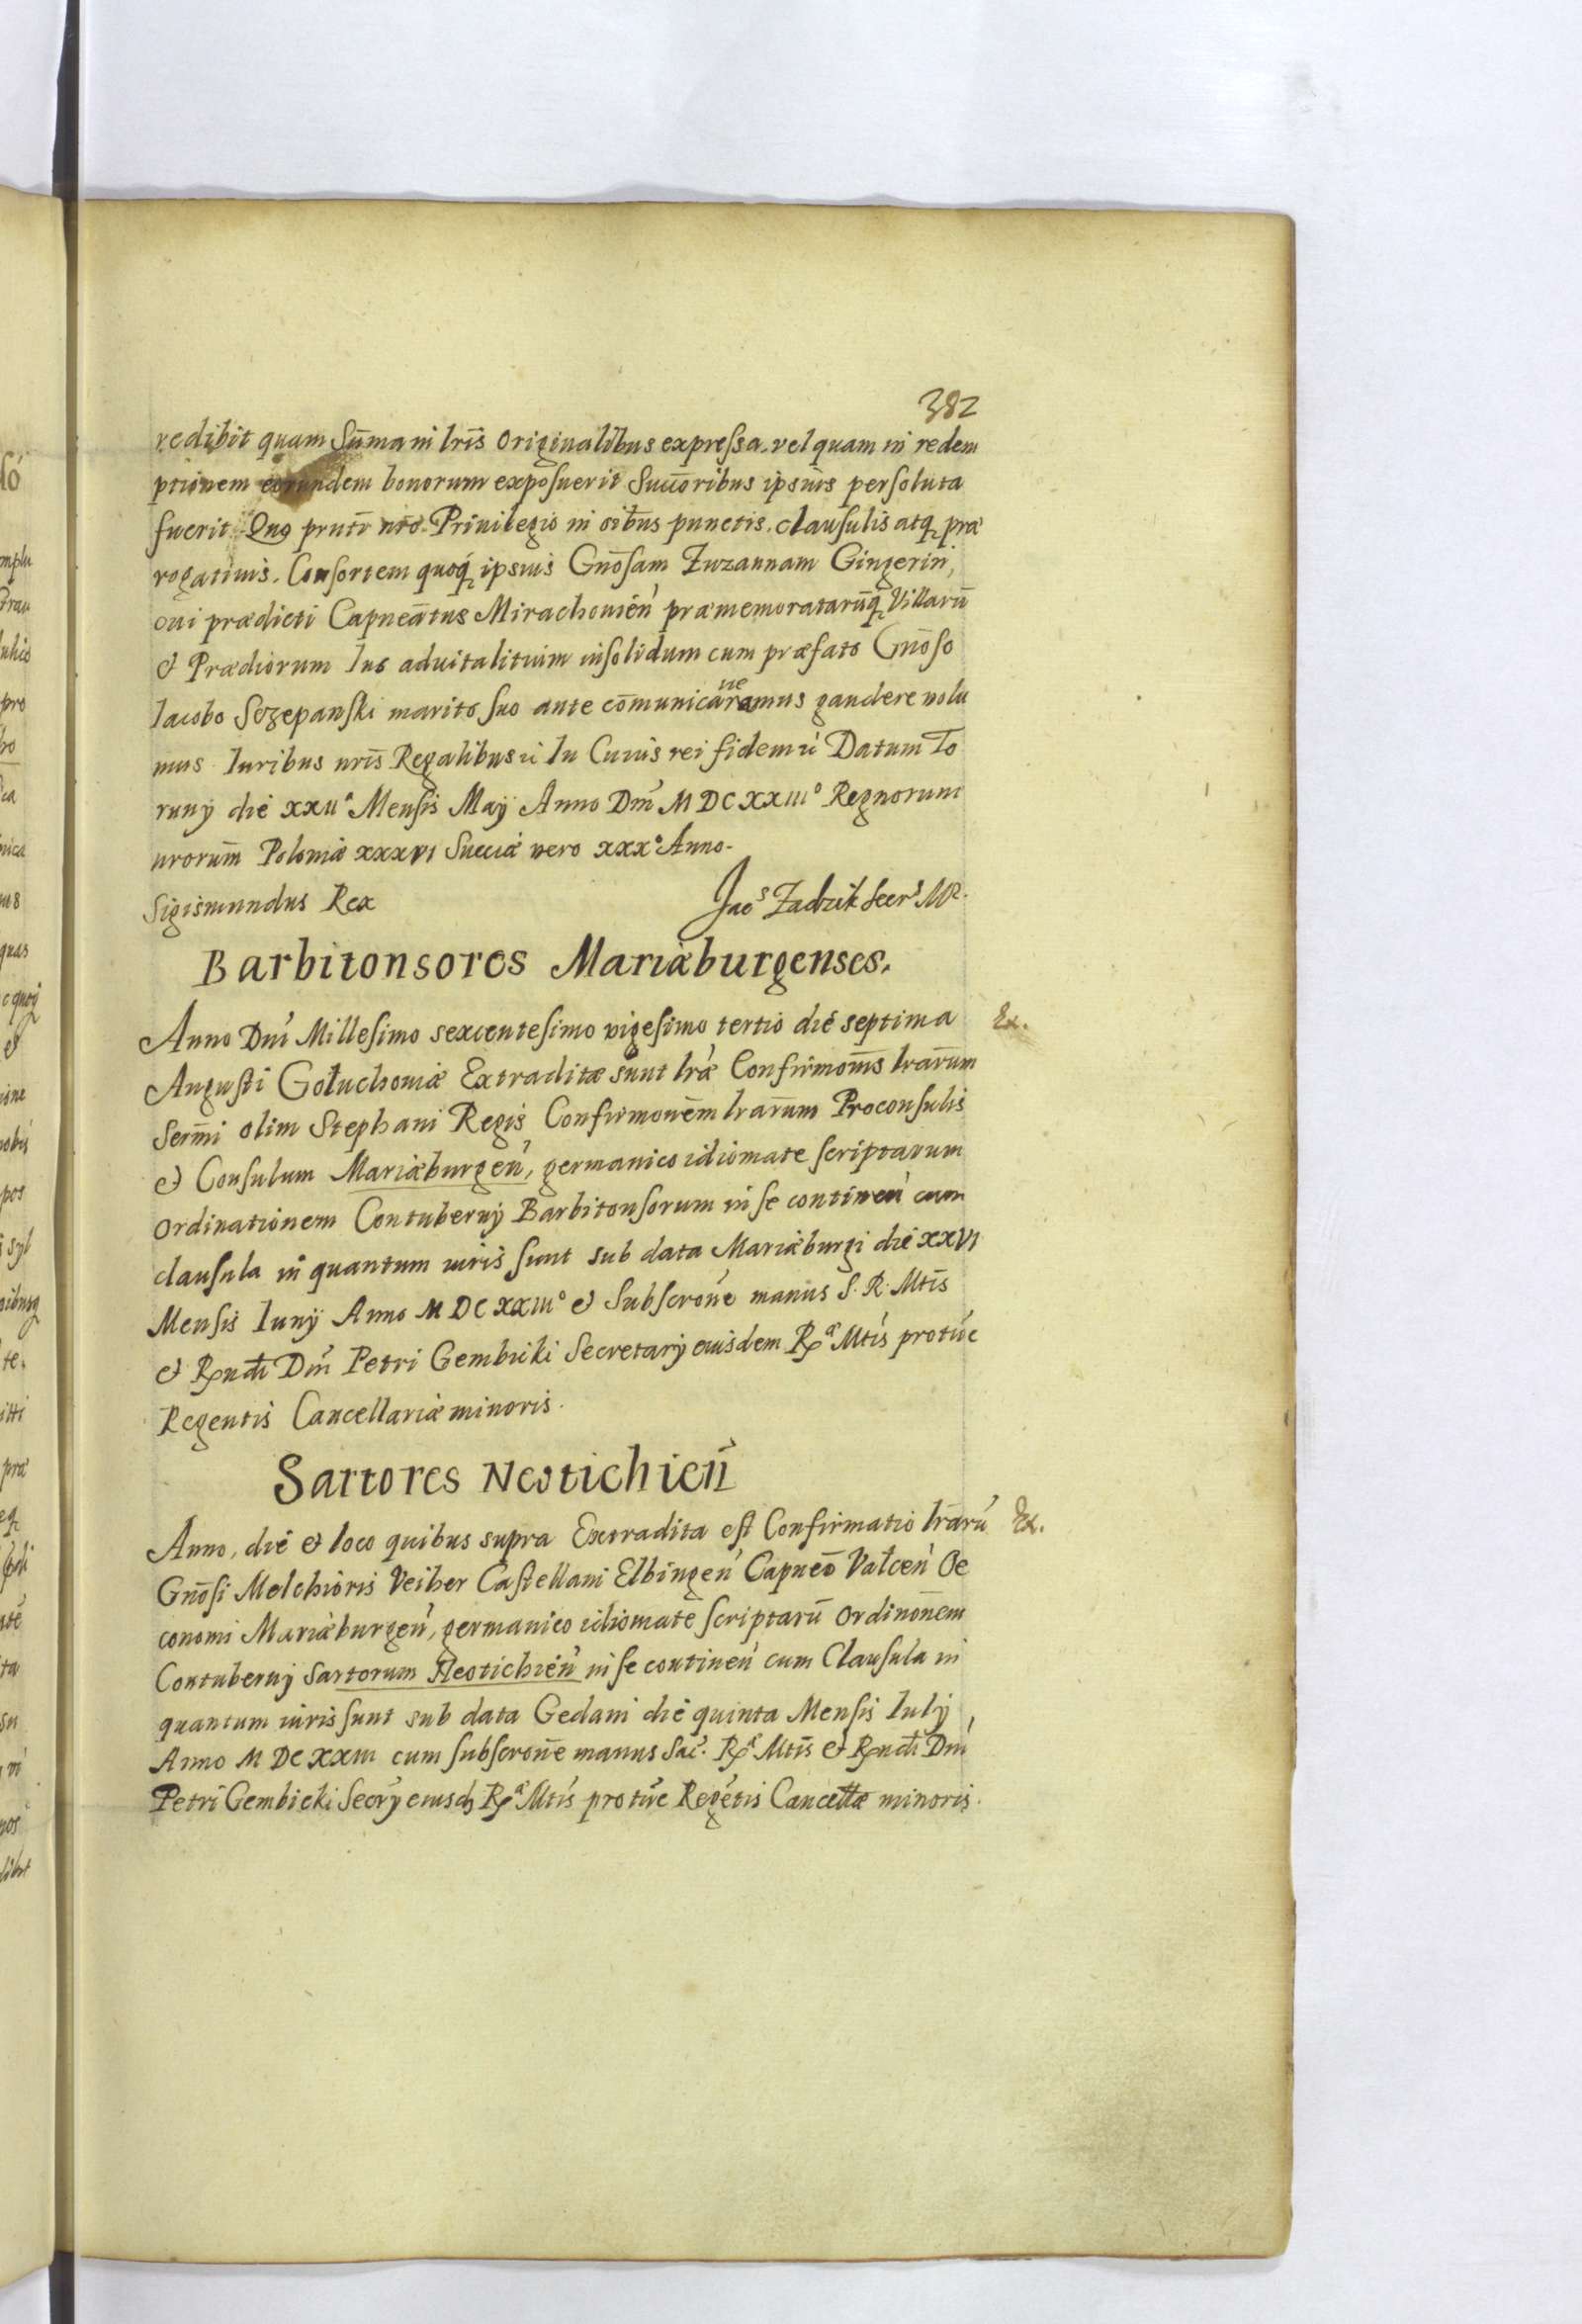 382
redibit quam Sum̄a in lrīs originalibus expressa, vel quam in redem
ptionem eorundem bonorum exposuerit Succoribus ipsius persoluta
fuerit. Quo pruti nrō Priuilegio in oībus punctis, clausulis atq̢ præ
rogatiuis, Consortem quoq̢ ipsius Gnōsam Zuzannam Gingerin,
oui prædicti Capneātus Mirachouień præmemoratarūq̢ Villarū
et Prædiorum Ius aduitalitium insolidum cum præfato Gnōso
Iacobo Sczepanski marito suo ante com̄unicaueramus gaudere volu
mus Iuribus nrīs Regalibus ii In Cuius rei fidem ii Datum To
runÿ die XXII° Mensis Maÿ Anno Dnī M DC XXIII° Regnorum
nrorum̄ Poloniæ XXXVI Sueciæ vero XXX° Anno.
Sigismundus Rex
Jac⁵ Zadzik Secr⁵ MR.
Barbitonsores Mariæburgenses.
Anno Dnī Millesimo sexcentesimo vigesimo tertio die septima
Ex.
Augusti Gołuchouiæ Extraditæ sunt lræ Confirmonīs lrarum
Serm̄i olim Stephani Regis Confirmonēm lrarum Proconsulis
et Consulum Mariæburgeń, germanico idiomate scriptarum
ordinationem Contubernÿ Barbitonsorum in se contineń cum
clausula in quantum iuris sunt sub data Mariæburgi die XXVI
Mensis Iunÿ Anno M DC XXIII° et Subscronē manus S. R. Mtīs
et Rndi Dnī Petri Gembicki Secretarÿ eiusdem Rª Mtīs protūc
Regentis Cancellariæ minoris.
Sartores Neotichień
Anno, die et loco quibus supra Extradita est Confirmatio lrarū
Ex.
Gnōsi Melchioris Veiher Castellani Elbingeń Capneō Vałceń Oe
conomi Mariæburgeń, germanico idiomate scriptarū ordinonēm
Contubernÿ Sartorum Neotichień in se contineń cum Clausula in
quantum iuris sunt sub data Gedani die quinta Mensis Iulÿ
Anno M DC XXIII cum subscronē manus Sac. Rª Mtīs et Rndi Dnī
Petri Gembicki Secrÿ eiusd Rª Mtīs protūc Regētis Cancełłæ minoris.